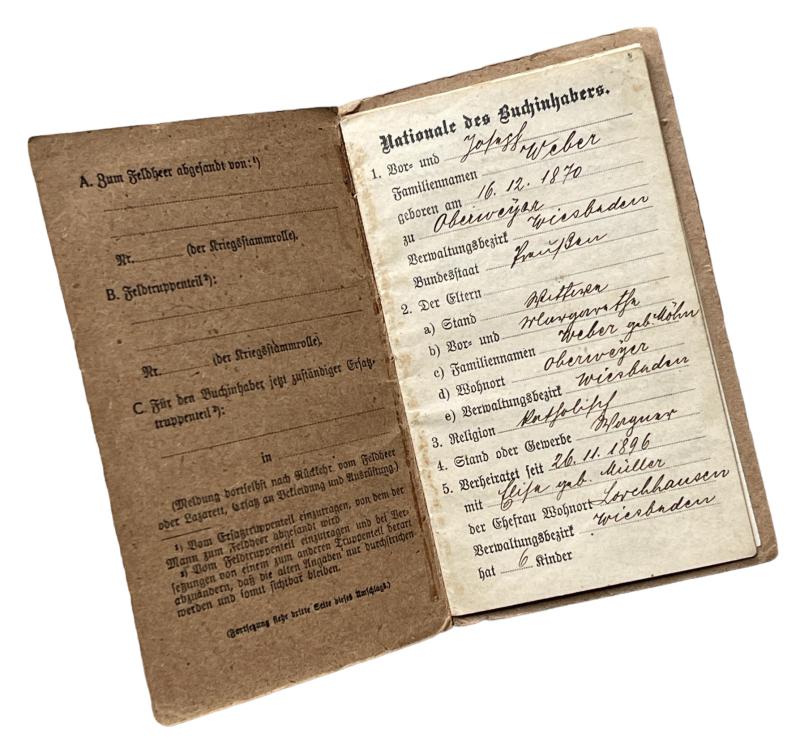 A. Zum Feldheer abgesandt von:¹)
Nr. (der Kriegsstammrolle).
B. Feldtruppenteil²):
Nr. (der Kriegsstammrolle).
C. Für den Buchinhaber jetzt zuständiger Ersatz-
truppenteil²):
in
(Meldung dortselbst nach Rückkehr vom Feldheer
oder Lazarett, Ersatz an Bekleidung und Ausrüstung.)
¹) Vom Ersatztruppenteil einzutragen, von dem der
Mann zum Feldheer abgesandt wird.
²) Vom Feldtruppenteil einzutragen und bei Ver-
setzungen von einem zum anderen Truppenteil derart
abzuändern, daß die alten Angaben nur durchstrichen
werden und somit sichtbar bleiben.
(Fortsetzung siehe dritte Seite dieses Umschlags.)
Nationale des Buchinhabers.
1. Vor- und Joseph
Familiennamen Weber
geboren am 16. 12. 1870
zu Oberweyer
Verwaltungsbezirk Wiesbaden
Bundesstaat Preußen
2. Der Eltern
a) Stand Wittwe
b) Vor- und Margaretha
c) Familiennamen Weber geb. Möhn
d) Wohnort Oberweyer
e) Verwaltungsbezirk Wiesbaden
3. Religion Katholisch
4. Stand oder Gewerbe Wagner
5. Verheiratet seit 26. 11. 1896
mit Elise geb. Müller
der Ehefrau Wohnort Lorchhausen
Verwaltungsbezirk Wiesbaden
hat 6 Kinder